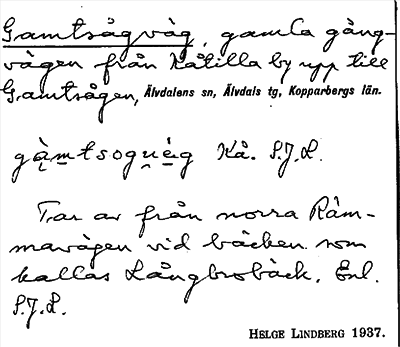 Gamtsågväg, gamla gång-
vägen från Kåtilla by upp till
Gamtsågen, Älvdalens sn, Älvdals tg, Kopparbergs län.
gàmtsogu̯èg Kå. S.J.L.
Tar av från norra Räm-
mavägen vid bäcken som
kallas Långbrobäck. Enl.
S.J.L.
HELGE LINDBERG 1937.